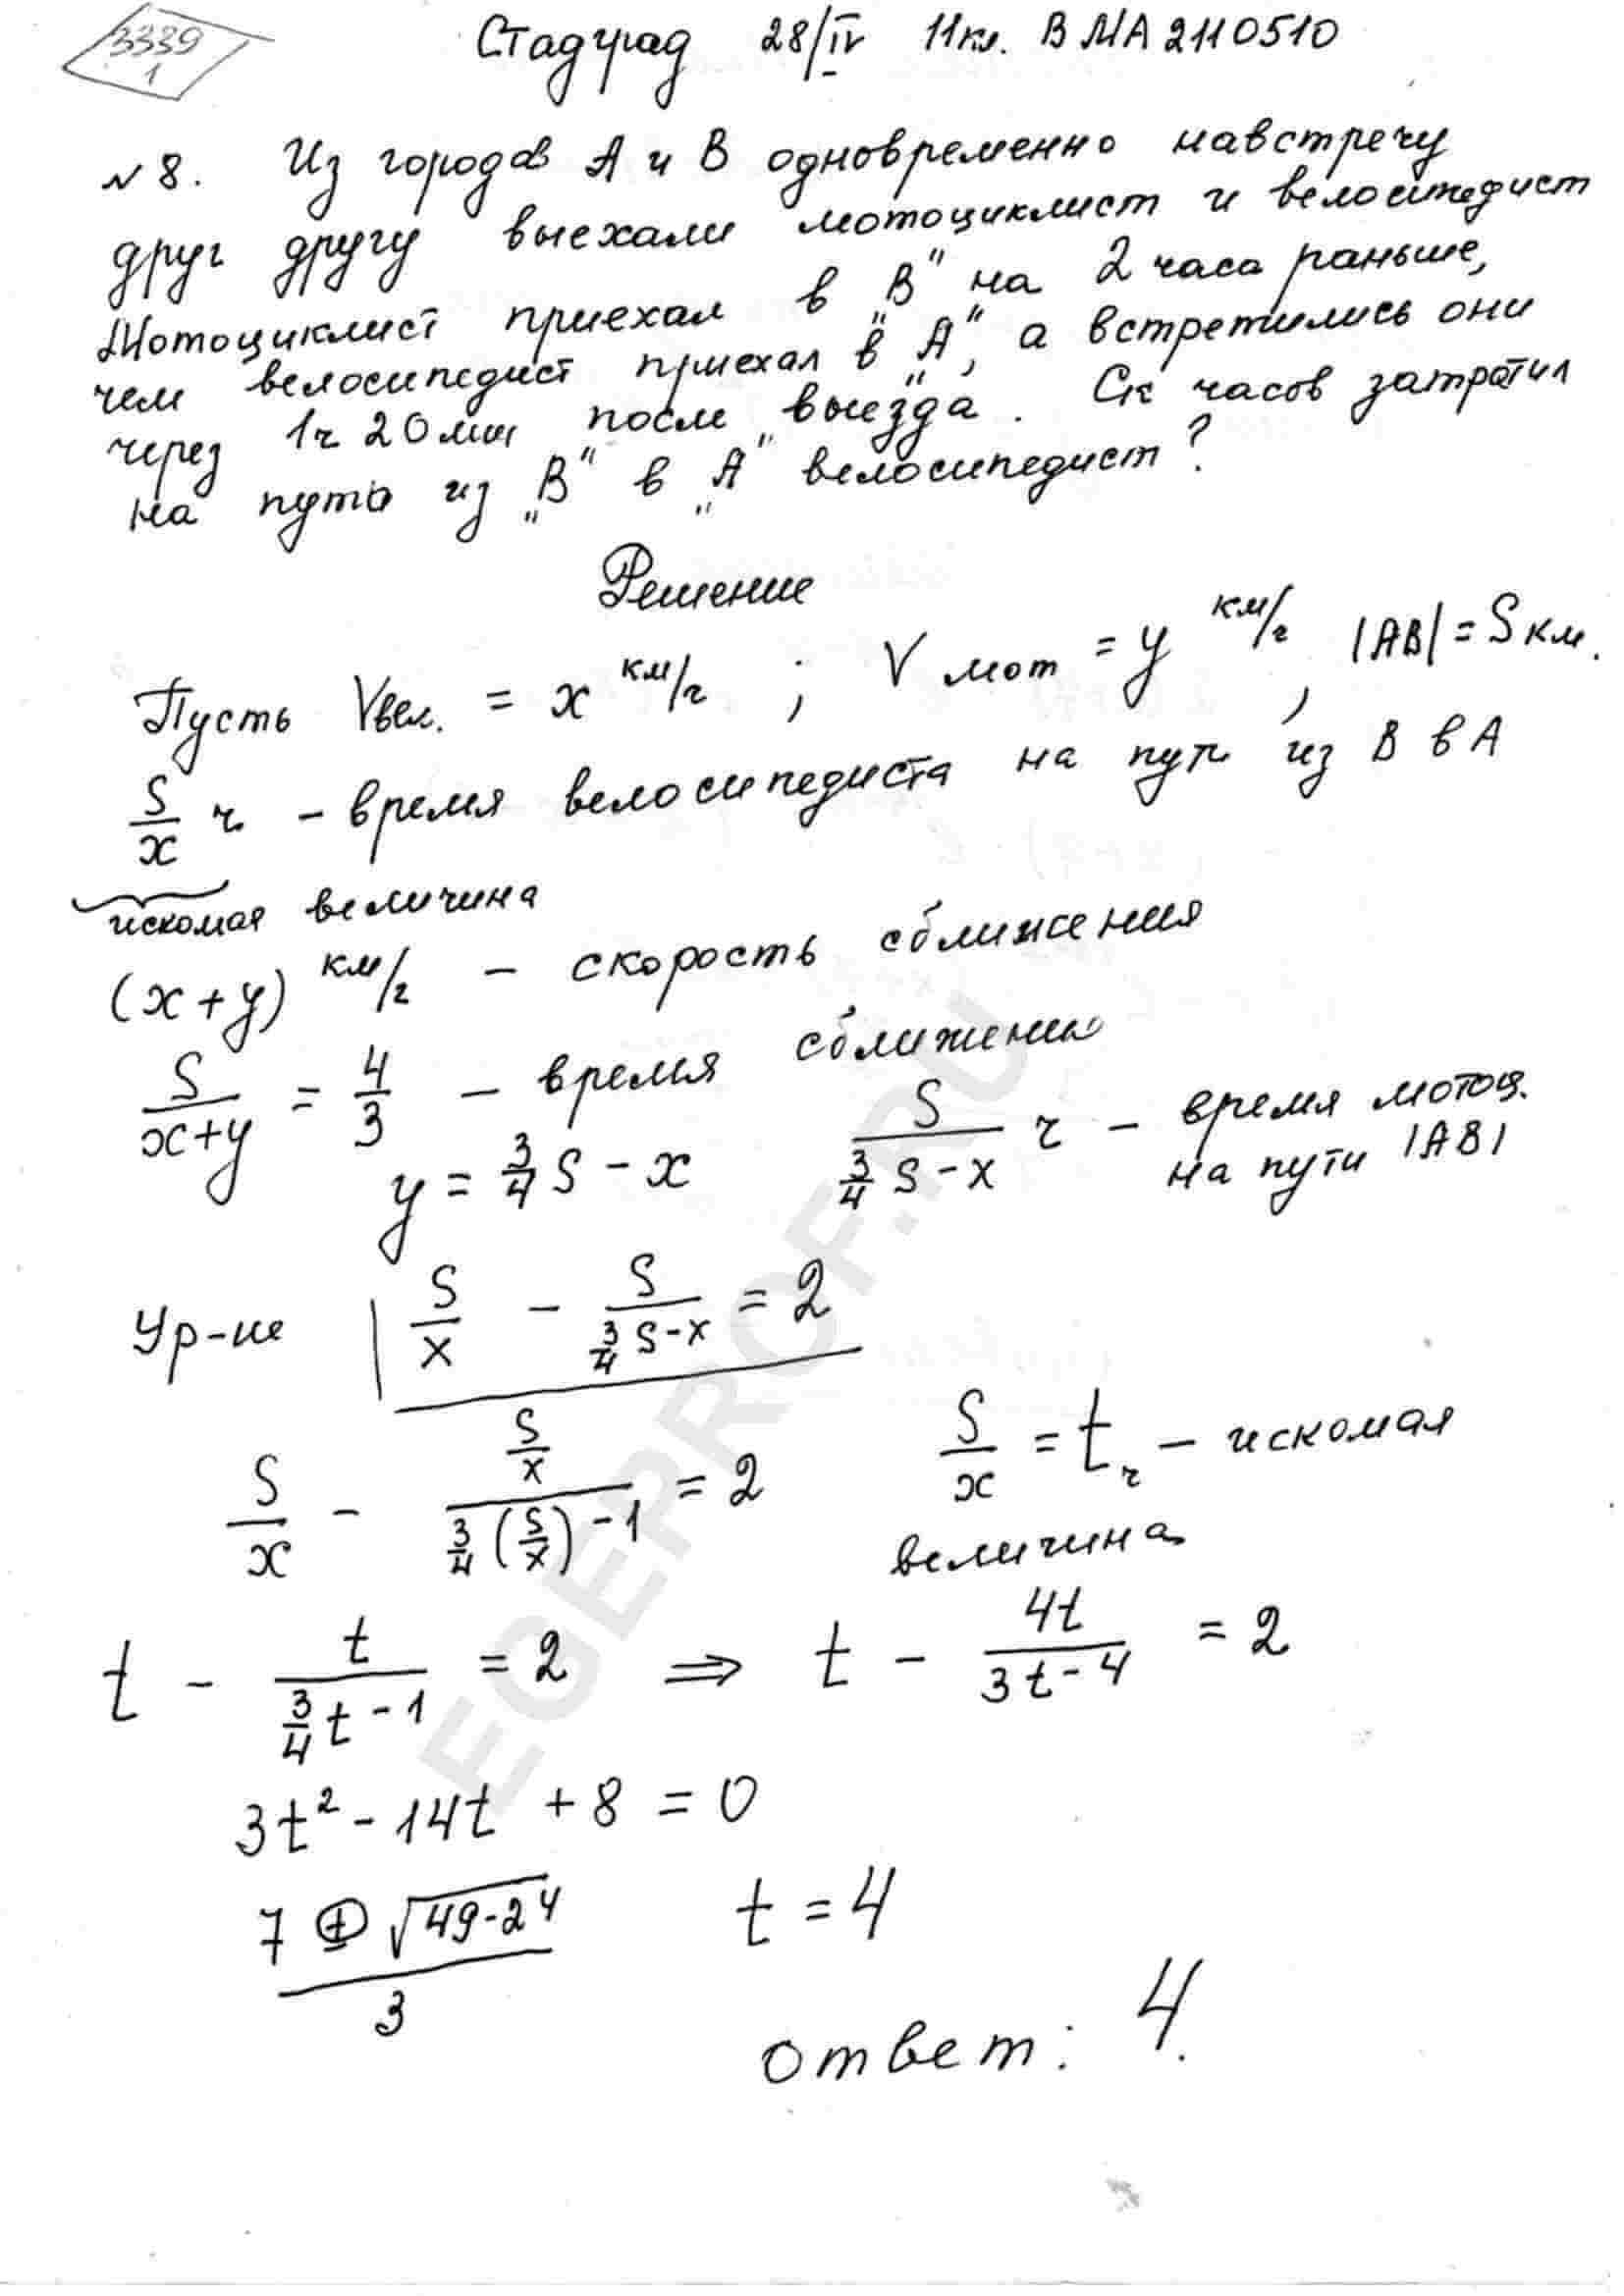 3339
1
Стадград 28/IV 11кл. ВМА2110510
№8. Из городов А и В одновременно навстречу
друг другу выехали мотоциклист и велосипедист
Мотоциклист приехал в „В" на 2 часа раньше,
чем велосипедист приехал в „А", а встретились они
через 1ч 20мин после выезда. Ск часов затратил
на путь из „В" в „А" велосипедист?
Решение
Пусть Vвел. = x км/ч ; V мот = y км/ч , |AB| = S км.
S/x ч - время велосипедиста на пути из В в А
искомая величина
(x+y) км/ч - скорость сближения
S/(x+y) = 4/3 - время сближения
y = 3/4 S - x S/(3/4 S - x) ч - время мотоц.
на пути |AB|
Ур-ие S/x - S/(3/4 S - x) = 2
S/x - (S/x)/(3/4 (S/x) - 1) = 2 S/x = t ч - искомая
величина
t - t/(3/4 t - 1) = 2 ⇒ t - 4t/(3t - 4) = 2
3t² - 14t + 8 = 0
(7 ± √(49-24))/3 t = 4
ответ: 4.
EGEPROF.RU